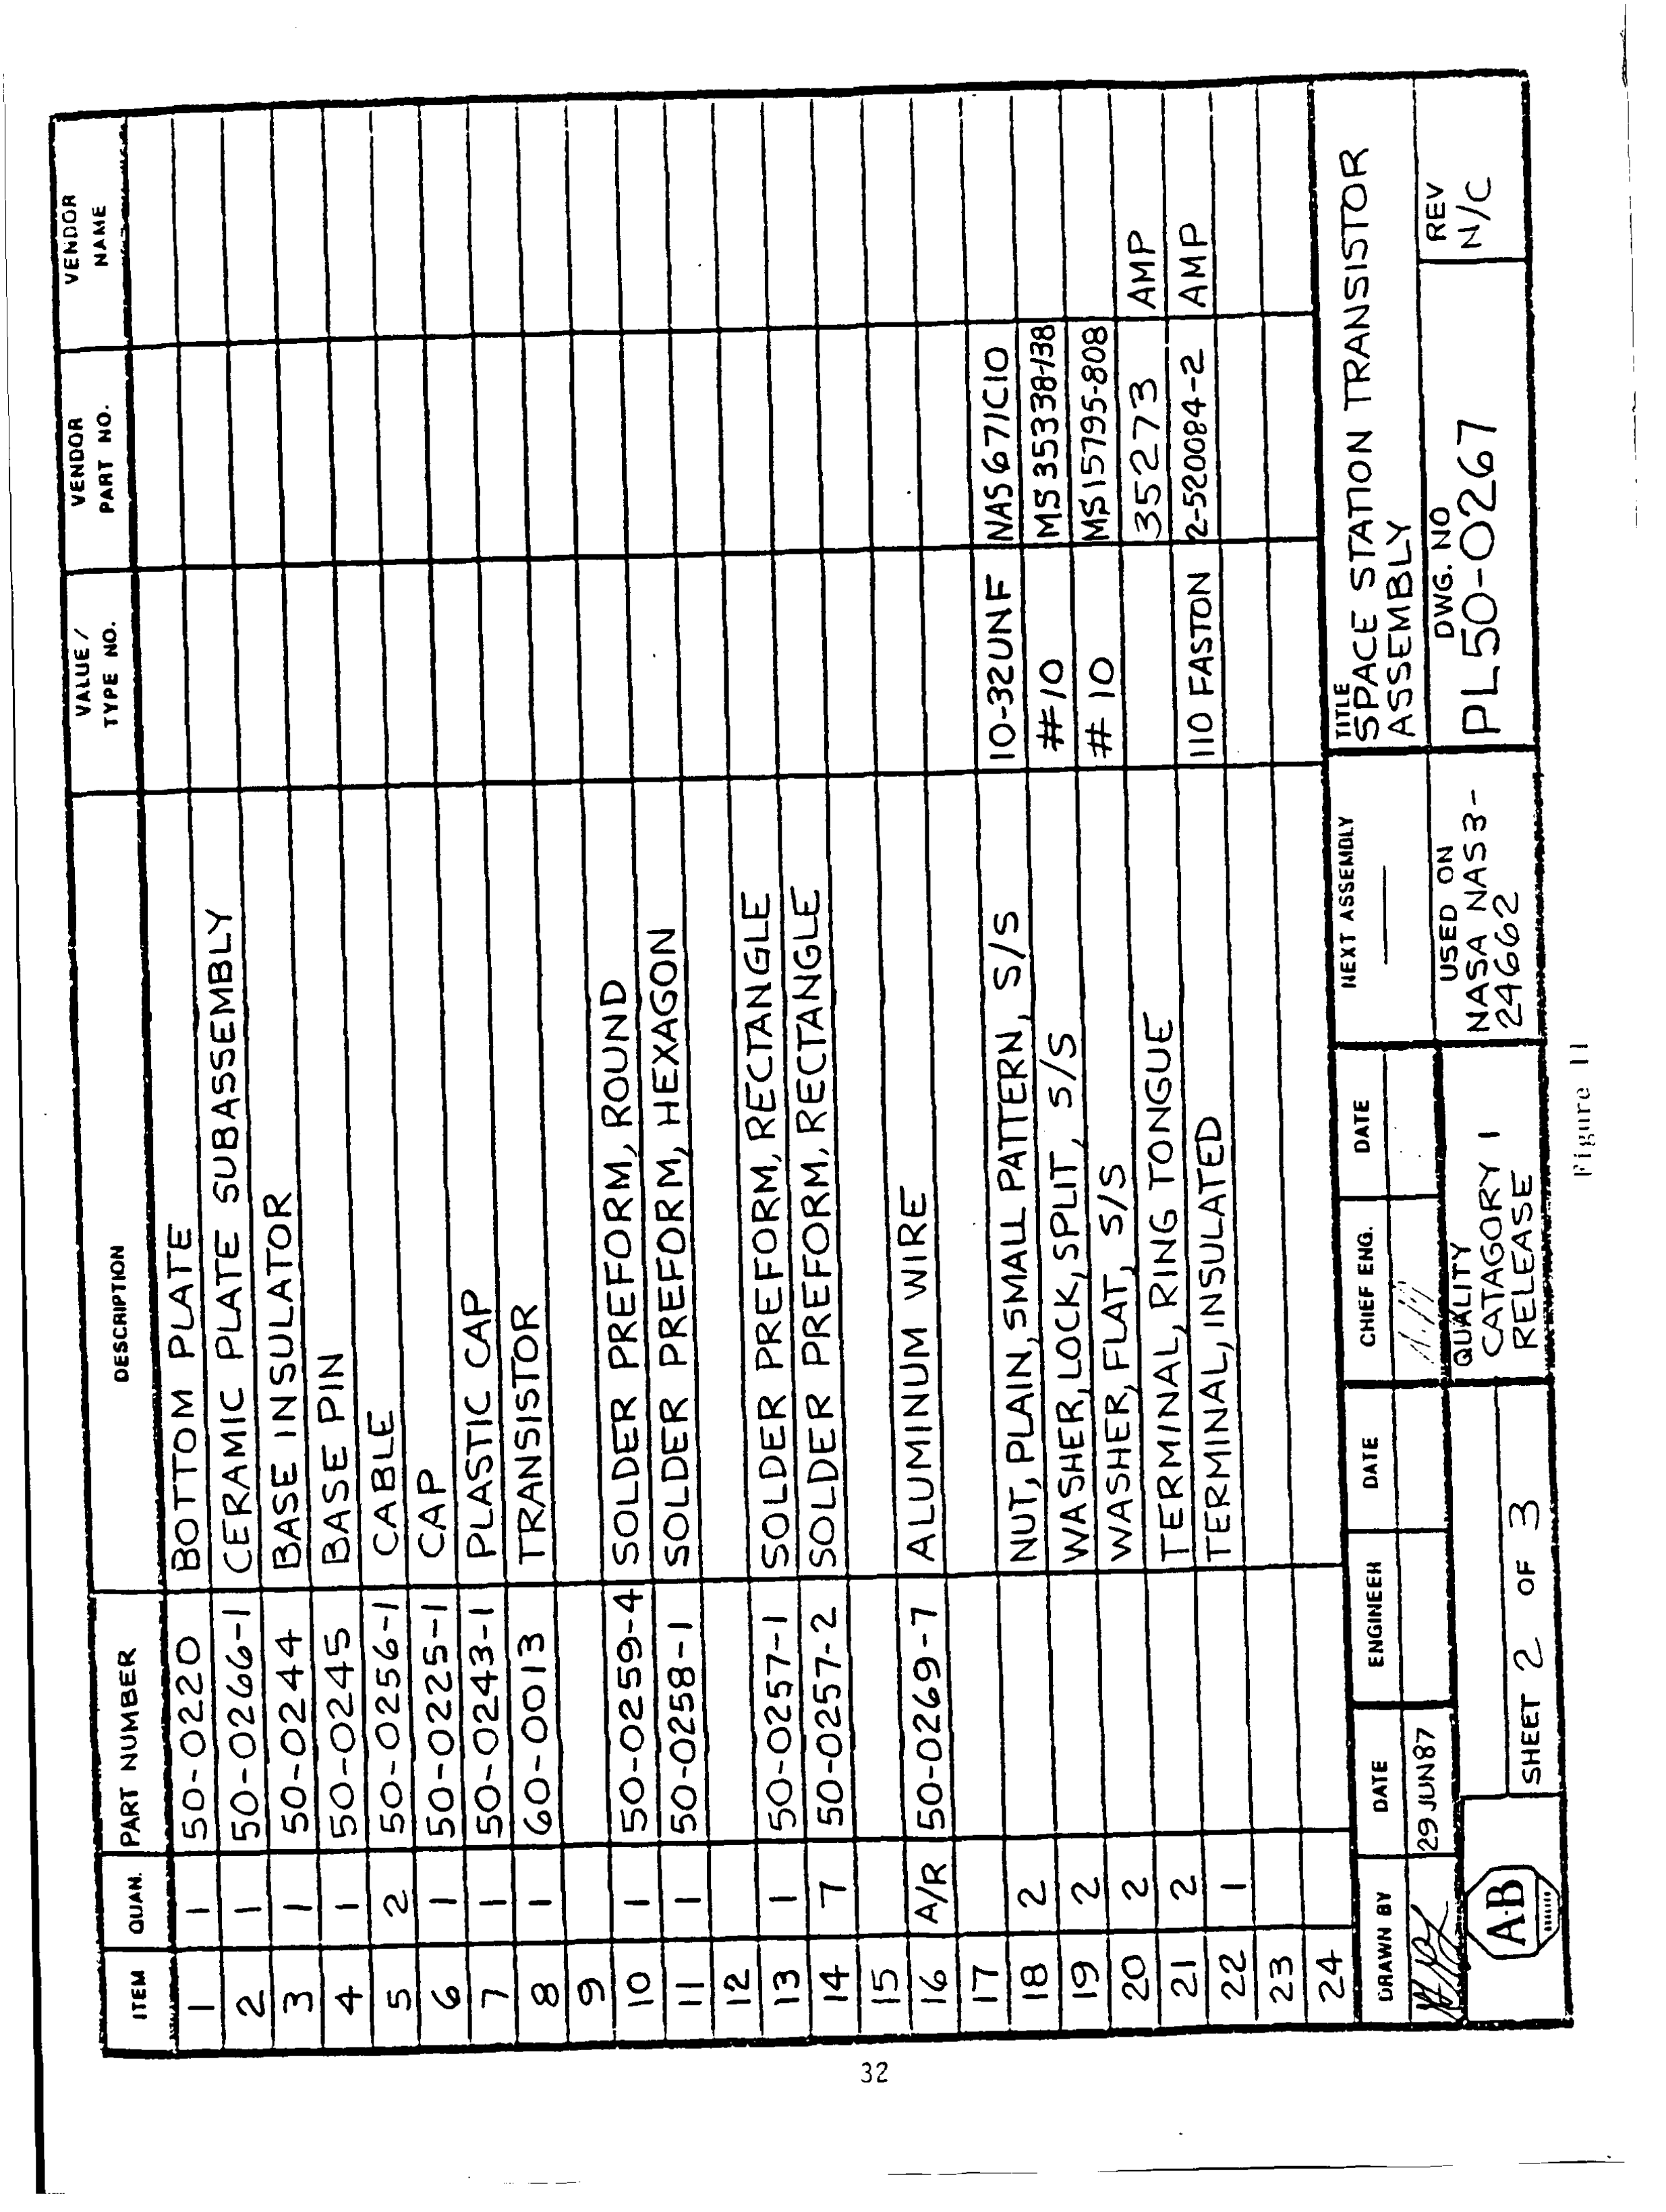 ITEM QUAN. PART NUMBER DESCRIPTION VALUE / TYPE NO. VENDOR PART NO. VENDOR NAME
1 1 50-0220 BOTTOM PLATE
2 1 50-0266-1 CERAMIC PLATE SUBASSEMBLY
3 1 50-0244 BASE INSULATOR
4 1 50-0245 BASE PIN
5 2 50-0256-1 CABLE
6 1 50-0225-1 CAP
7 1 50-0243-1 PLASTIC CAP
8 1 60-0013 TRANSISTOR
9
10 1 50-0259-4 SOLDER PREFORM, ROUND
11 1 50-0258-1 SOLDER PREFORM, HEXAGON
12
13 1 50-0257-1 SOLDER PREFORM, RECTANGLE
14 7 50-0257-2 SOLDER PREFORM, RECTANGLE
15
16 A/R 50-0269-7 ALUMINUM WIRE
17
18 2 NUT, PLAIN, SMALL PATTERN, S/S 10-32UNF NAS671C10
19 2 WASHER, LOCK, SPLIT, S/S #10 MS35338-138
20 2 WASHER, FLAT, S/S #10 MS15795-808
21 2 TERMINAL, RING TONGUE 35273 AMP
22 1 TERMINAL, INSULATED 110 FASTON 2-520084-2 AMP
23
24
DRAWN BY DATE ENGINEER DATE CHIEF ENG. DATE NEXT ASSEMBLY TITLE
29 JUN87 — SPACE STATION TRANSISTOR
ASSEMBLY
A·B
SHEET 2 OF 3
QUALITY
CATAGORY 1
RELEASE
USED ON
NASA NAS3-
24662
DWG. NO
PL50-0267
REV
N/C
Figure 11
32